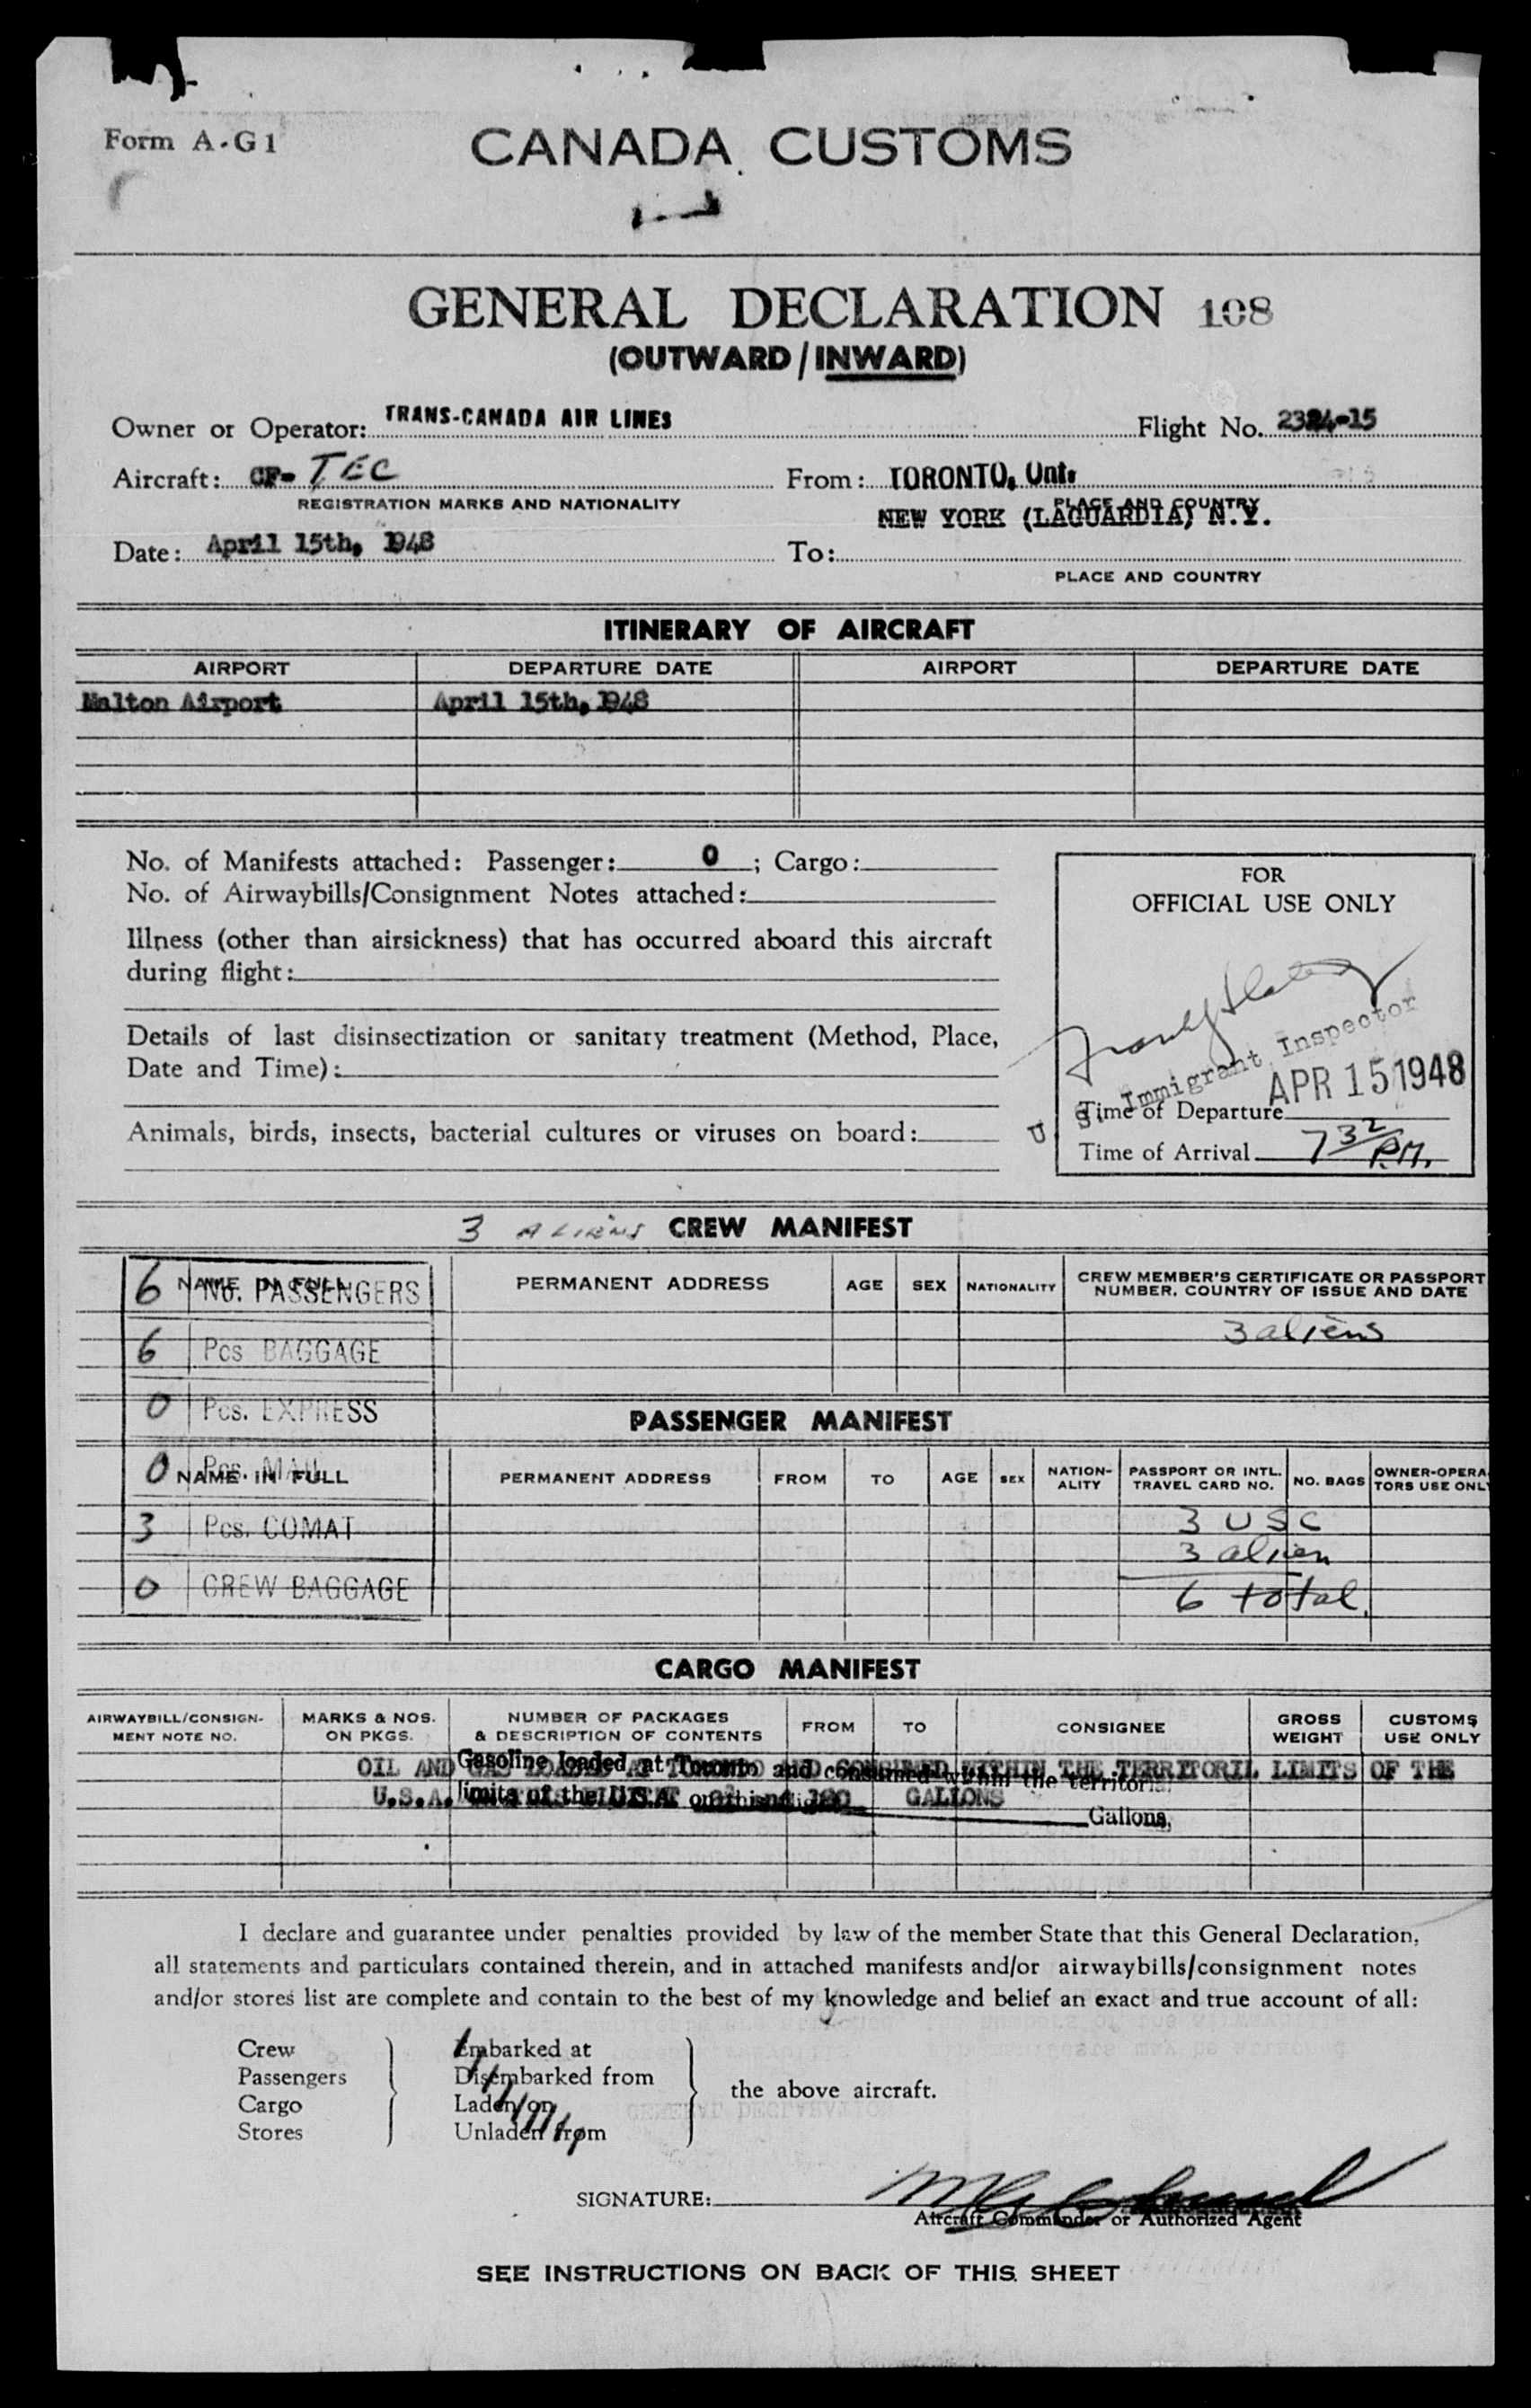 Form A-G1
CANADA CUSTOMS
GENERAL DECLARATION 108
(OUTWARD/INWARD)
Owner or Operator: TRANS-CANADA AIR LINES Flight No.
Aircraft: CF- TEC From: TORONTO, Ont.
REGISTRATION MARKS AND NATIONALITY PLACE AND COUNTRY
NEW YORK (LAGUARDIA) N.Y.
Date: April 15th, 1948 To:
PLACE AND COUNTRY
ITINERARY OF AIRCRAFT
AIRPORT DEPARTURE DATE AIRPORT DEPARTURE DATE
Malton Airport April 15th, 1948
No. of Manifests attached: Passenger: 0 ; Cargo:
No. of Airwaybills/Consignment Notes attached:
Illness (other than airsickness) that has occurred aboard this aircraft
during flight:
Details of last disinsectization or sanitary treatment (Method, Place,
Date and Time):
Animals, birds, insects, bacterial cultures or viruses on board:
FOR
OFFICIAL USE ONLY
U S Immigrant Inspector
APR 15 1948
Time of Departure
Time of Arrival 7 32 P.M.
3 ALIENS CREW MANIFEST
NAME IN FULL PERMANENT ADDRESS AGE SEX NATIONALITY CREW MEMBER'S CERTIFICATE OR PASSPORT
NUMBER, COUNTRY OF ISSUE AND DATE
6 NO. PASSENGERS
3 aliens
6 Pcs BAGGAGE
0 Pcs. EXPRESS
PASSENGER MANIFEST
0 Pcs. MAIL
NAME IN FULL PERMANENT ADDRESS FROM TO AGE SEX NATION-
ALITY PASSPORT OR INTL.
TRAVEL CARD NO. NO. BAGS OWNER-OPERA
TORS USE ONLY
3 Pcs. COMAT
3 USC
3 alien
0 CREW BAGGAGE
6 total.
CARGO MANIFEST
AIRWAYBILL/CONSIGN-
MENT NOTE NO. MARKS & NOS.
ON PKGS. NUMBER OF PACKAGES
& DESCRIPTION OF CONTENTS FROM TO CONSIGNEE GROSS
WEIGHT CUSTOMS
USE ONLY
OIL AND GAS LOADED AT TORONTO AND CONSUMED WITHIN THE TERRITORIL LIMITS OF THE
Gasoline loaded at Toronto and consumed within the territorial
U.S.A. GALLONS
limits of the U.S.A. on this flight
Gallons.
I declare and guarantee under penalties provided by law of the member State that this General Declaration,
all statements and particulars contained therein, and in attached manifests and/or airwaybills/consignment notes
and/or stores list are complete and contain to the best of my knowledge and belief an exact and true account of all:
Crew Embarked at
Passengers Disembarked from
the above aircraft.
Cargo Laden on
Stores Unladen from
SIGNATURE:
Aircraft Commander or Authorized Agent
SEE INSTRUCTIONS ON BACK OF THIS SHEET